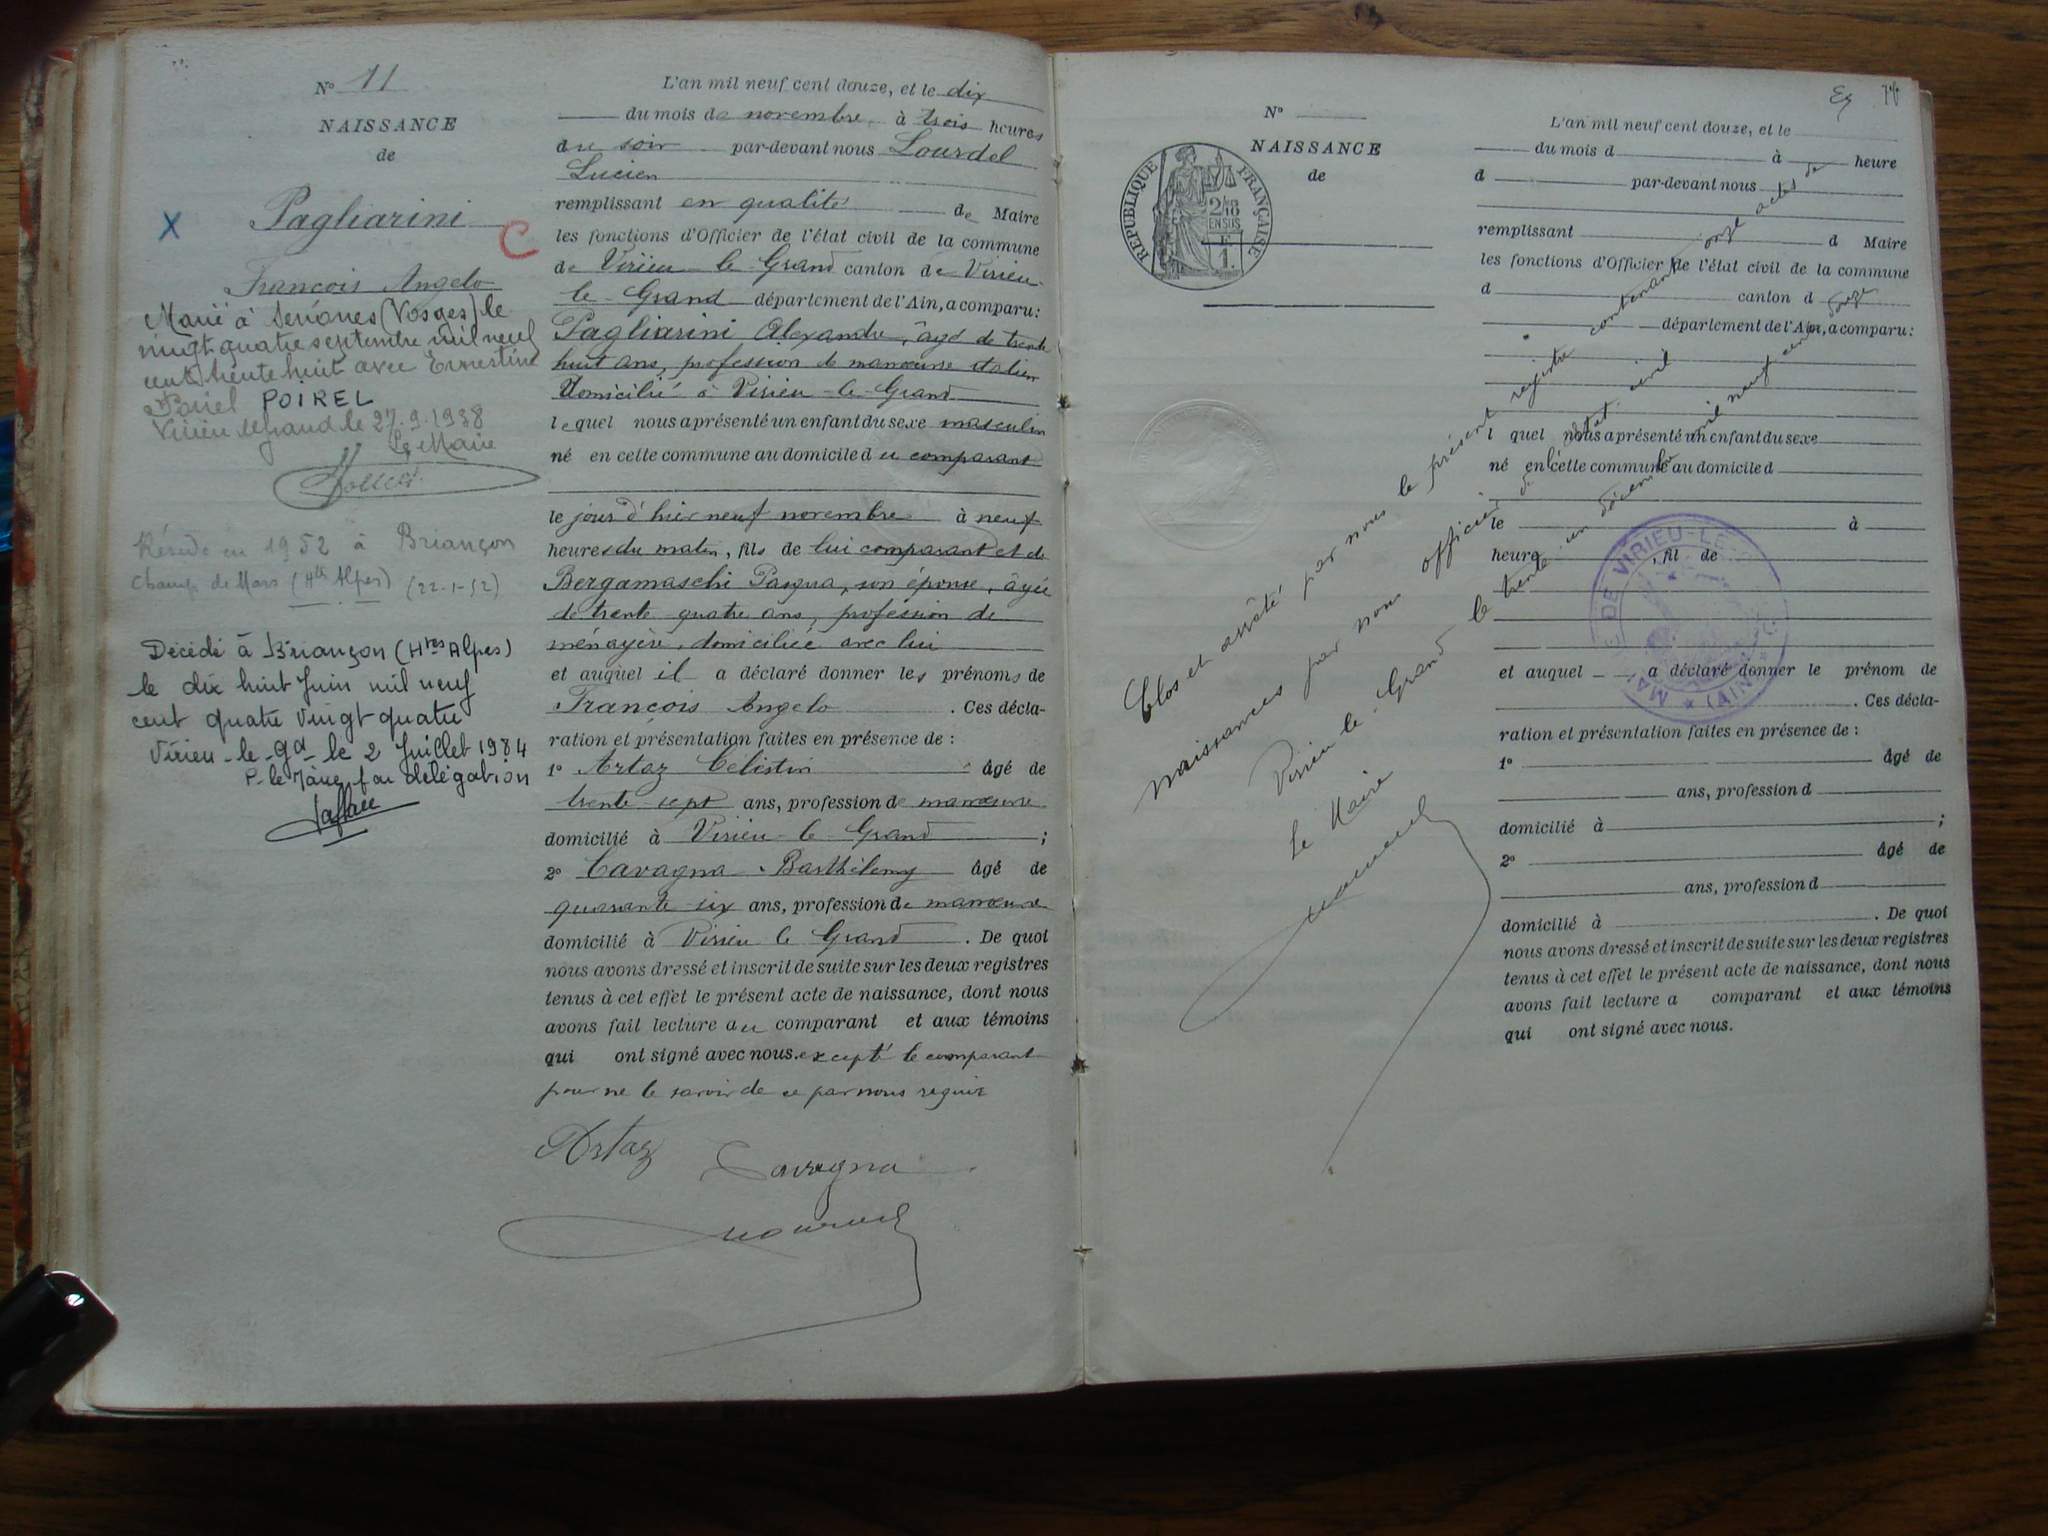 N° 11
NAISSANCE
de
Pagliarini
François Angelo
Marié à Senones (Vosges) le
vingt quatre septembre mil neuf
cent trente huit avec Ernestine
POIREL
Virieu le grand le 27.9.1938
Le Maire
Réside en 1952 à Briançon
Champ de Mars (Htes Alpes) (22-1-52)
Décédé à Briançon (Htes Alpes)
le dix huit Juin mil neuf
cent quatre vingt quatre
Virieu-le-Gd le 2 Juillet 1984
P. le Maire par délégation
X
C
L'an mil neuf cent douze, et le dix
du mois de novembre à trois heures
du soir par-devant nous Lourdel
Lucien
remplissant en qualité de Maire
les fonctions d'Officier de l'état civil de la commune
de Virieu-le-Grand canton de Virieu-
le-Grand département de l'Ain, a comparu:
Pagliarini Alexandre, âgé de trente
huit ans, profession de manœuvre italien
domicilié à Virieu-le-Grand
lequel nous a présenté un enfant du sexe masculin
né en cette commune au domicile du comparant
le jour d'hier neuf novembre à neuf
heures du matin, fils de lui comparant et de
Bergamaschi Pasqua, son épouse, âgée
de trente quatre ans, profession de
ménagère, domiciliée avec lui
et auquel il a déclaré donner les prénoms de
François Angelo. Ces décla-
ration et présentation faites en présence de :
1° Artaz Célestin âgé de
trente-sept ans, profession de manœuvre
domicilié à Virieu-le-Grand ;
2° Cavagna Barthélemy âgé de
quarante-six ans, profession de manœuvre
domicilié à Virieu le Grand. De quoi
nous avons dressé et inscrit de suite sur les deux registres
tenus à cet effet le présent acte de naissance, dont nous
avons fait lecture au comparant et aux témoins
qui ont signé avec nous. excepté le comparant
pour ne le savoir de ce par nous requis
Artaz Cavagna
N°
NAISSANCE
de
RÉPUBLIQUE FRANÇAISE
2/10
EN SUS
1.
L'an mil neuf cent douze, et le
du mois d à heure
d par-devant nous
remplissant d Maire
les fonctions d'Officier de l'état civil de la commune
d canton d
département de l'Ain, a comparu:
l quel nous a présenté un enfant du sexe
né en cette commune au domicile d
le à
heure , fil de
et auquel a déclaré donner le prénom de
. Ces décla-
ration et présentation faites en présence de :
1° âgé de
ans, profession d
domicilié à ;
2° âgé de
ans, profession d
domicilié à . De quoi
nous avons dressé et inscrit de suite sur les deux registres
tenus à cet effet le présent acte de naissance, dont nous
avons fait lecture a comparant et aux témoins
qui ont signé avec nous.
Clos et arrêté par nous le présent registre contenant onze actes de
naissances par nous officier de l'état civil
Virieu-le-Grand le trente un décembre mil neuf cent douze
Le Maire
MAIRIE DE VIRIEU-LE- (AIN)